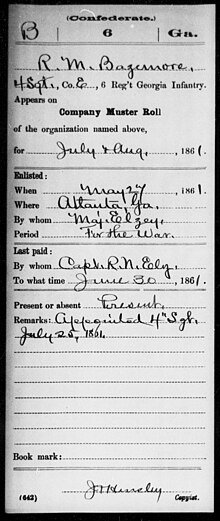 (Confederate.)
B | 6 | Ga.
R. M. Bazemore,
4 Sgt., Co. E, 6 Reg't Georgia Infantry.
Appears on
Company Muster Roll
of the organization named above,
for July & Aug, 1861.
Enlisted:
When May 27, 1861.
Where Atlanta, Ga.
By whom Maj. Elzey.
Period For the War.
Last paid:
By whom Capt. R. N. Ely.
To what time June 30, 1861.
Present or absent Present.
Remarks: Appointed 4th Sgt.
July 25, 1861.
Book mark:
(642) Copyist.